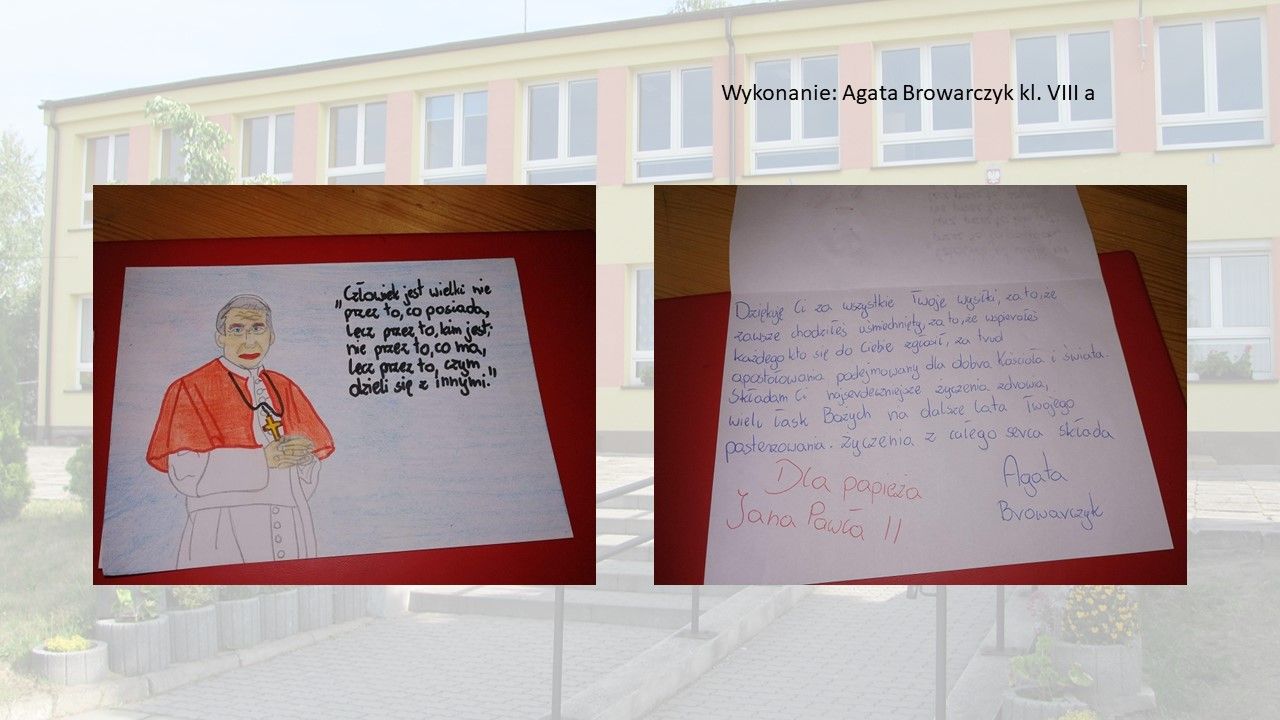 Wykonanie: Agata Browarczyk kl. VIII a
„Człowiek jest wielki nie
przez to, co posiada,
lecz przez to, kim jest;
nie przez to, co ma,
lecz przez to, czym
dzieli się z innymi."
Dziękuję Ci za wszystkie Twoje wysiłki, za to, że
zawsze chodziłeś uśmiechnięty, za to, że wspierałeś
każdego kto się do Ciebie zgłosił, za trud
apostołowania podejmowany dla dobra Kościoła i świata.
Składam Ci najserdeczniejsze życzenia zdrowia,
wielu łask Bożych na dalsze lata Twojego
pasterzowania. Życzenia z całego serca składa
Agata
Browarczyk
Dla papieża
Jana Pawła II